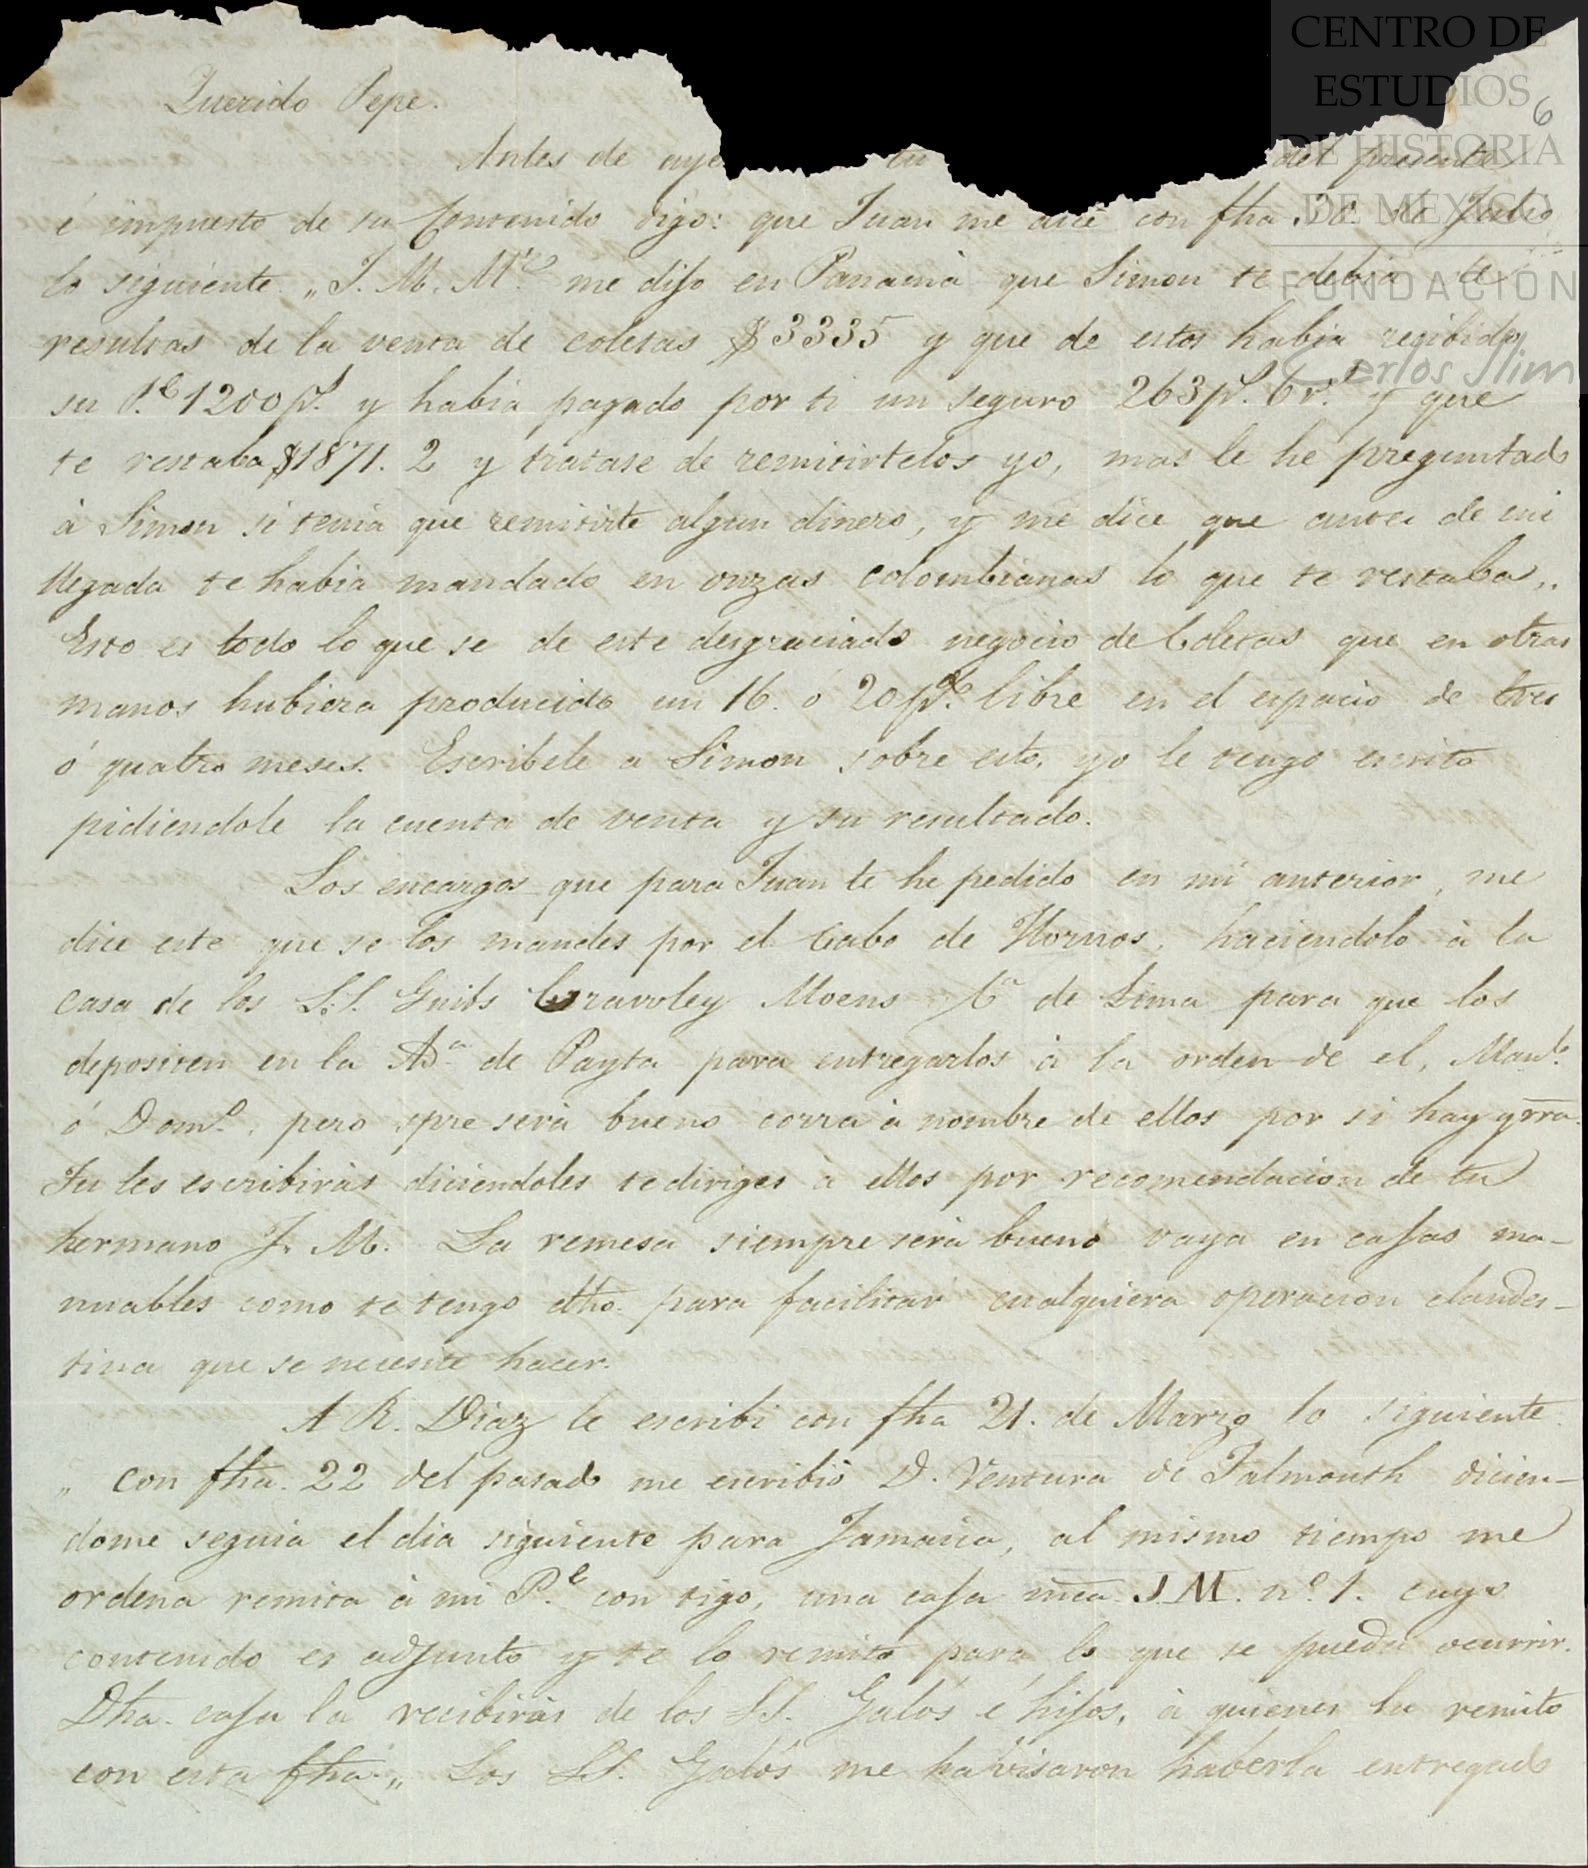 CENTRO DE
ESTUDIOS
DE HISTORIA
DE MEXICO
FUNDACIÓN
Carlos Slim
6
Querido Pepe.
Antes de aye tu del presente
é impuesto de su Contenido digo: que Juan me dice con fha de Julio
lo siguiente. „ J. M. M.es me dijo en Panamá que Simon te debia de
resultas de la venta de coletas $3335 y que de estos habia recibido
su P.e 1200 p.s y habia pagado por ti un seguro 263 p.s 6 r.s y que
te restaba $1871. 2 y tratase de remitirtelos yo, mas le he preguntado
à Simon si tenia que remitirte algun dinero, y me dice que antes de mi
llegada te habia mandado en onzas colombianas lo que te restaba „
Esto es todo lo que se de este desgraciado negocio de Coletas que en otras
manos hubiera producido un 16. ó 20 p.% libre en el espacio de tres
ó quatro meses. Escribele a Simon sobre esto, yo le tengo escrito
pidiendole la cuenta de venta y su resultado.
Los encargos que para Juan te he pedido en mi anterior, me
dice este que se los mandes por el Cabo de Hornos, haciendolo à la
casa de los S.S. Guibs Cravoley Moens C.a de Lima para que los
depositen en la Ad.a de Payta para entregarlos à la orden de el, Man.l
ó Dom.o, pero spre será bueno corra à nombre de ellos por si hay grra.
Tu les escribirás diciendoles te diriges à ellos por recomendacion de tu
hermano J. M. La remesa siempre será bueno vaya en cajas ma-
nuables como te tengo dho. para facilitar cualquiera operacion clandes-
tina que se necesite hacer.
A R. Diaz le escribi con fha 21. de Marzo lo siguiente.
„ con fha. 22 del pasado me escribió D. Ventura de Falmouth dicien-
dome seguia el dia siguiente para Jamaica, al mismo tiempo me
ordena remita à mi P.e con tigo, una caja mca J.M. n.o 1. cuyo
contenido es adjunto y te lo remito para lo que se pueda ocurrir.
Dha. caja la recibirás de los S.S. Galos é hijos, à quienes la remito
con esta fha „ Los S.S. Galos me havisaron haberla entregado